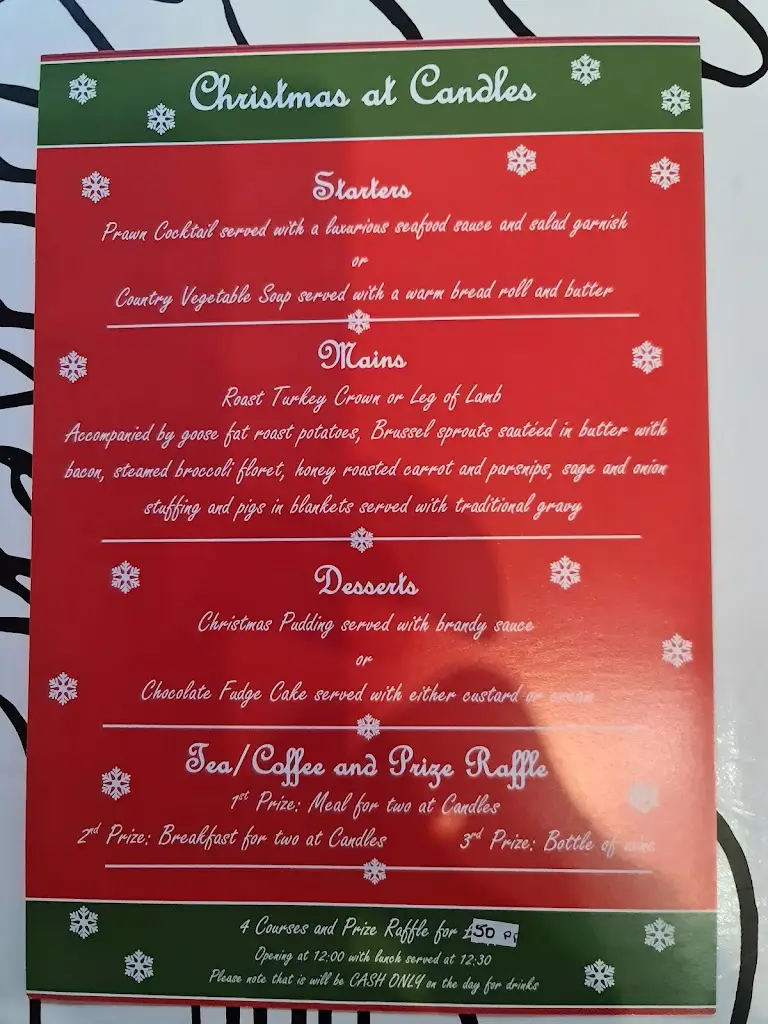 Christmas at Candles
Starters
Prawn Cocktail served with a luxurious seafood sauce and salad garnish
or
Country Vegetable Soup served with a warm bread roll and butter
Mains
Roast Turkey Crown or Leg of Lamb
Accompanied by goose fat roast potatoes, Brussel sprouts sautéed in butter with
bacon, steamed broccoli floret, honey roasted carrot and parsnips, sage and onion
stuffing and pigs in blankets served with traditional gravy
Desserts
Christmas Pudding served with brandy sauce
or
Chocolate Fudge Cake served with either custard or cream
Tea/Coffee and Prize Raffle
1st Prize: Meal for two at Candles
2nd Prize: Breakfast for two at Candles 3rd Prize: Bottle of wine
4 Courses and Prize Raffle for £50 pp
Opening at 12:00 with lunch served at 12:30
Please note that is will be CASH ONLY on the day for drinks